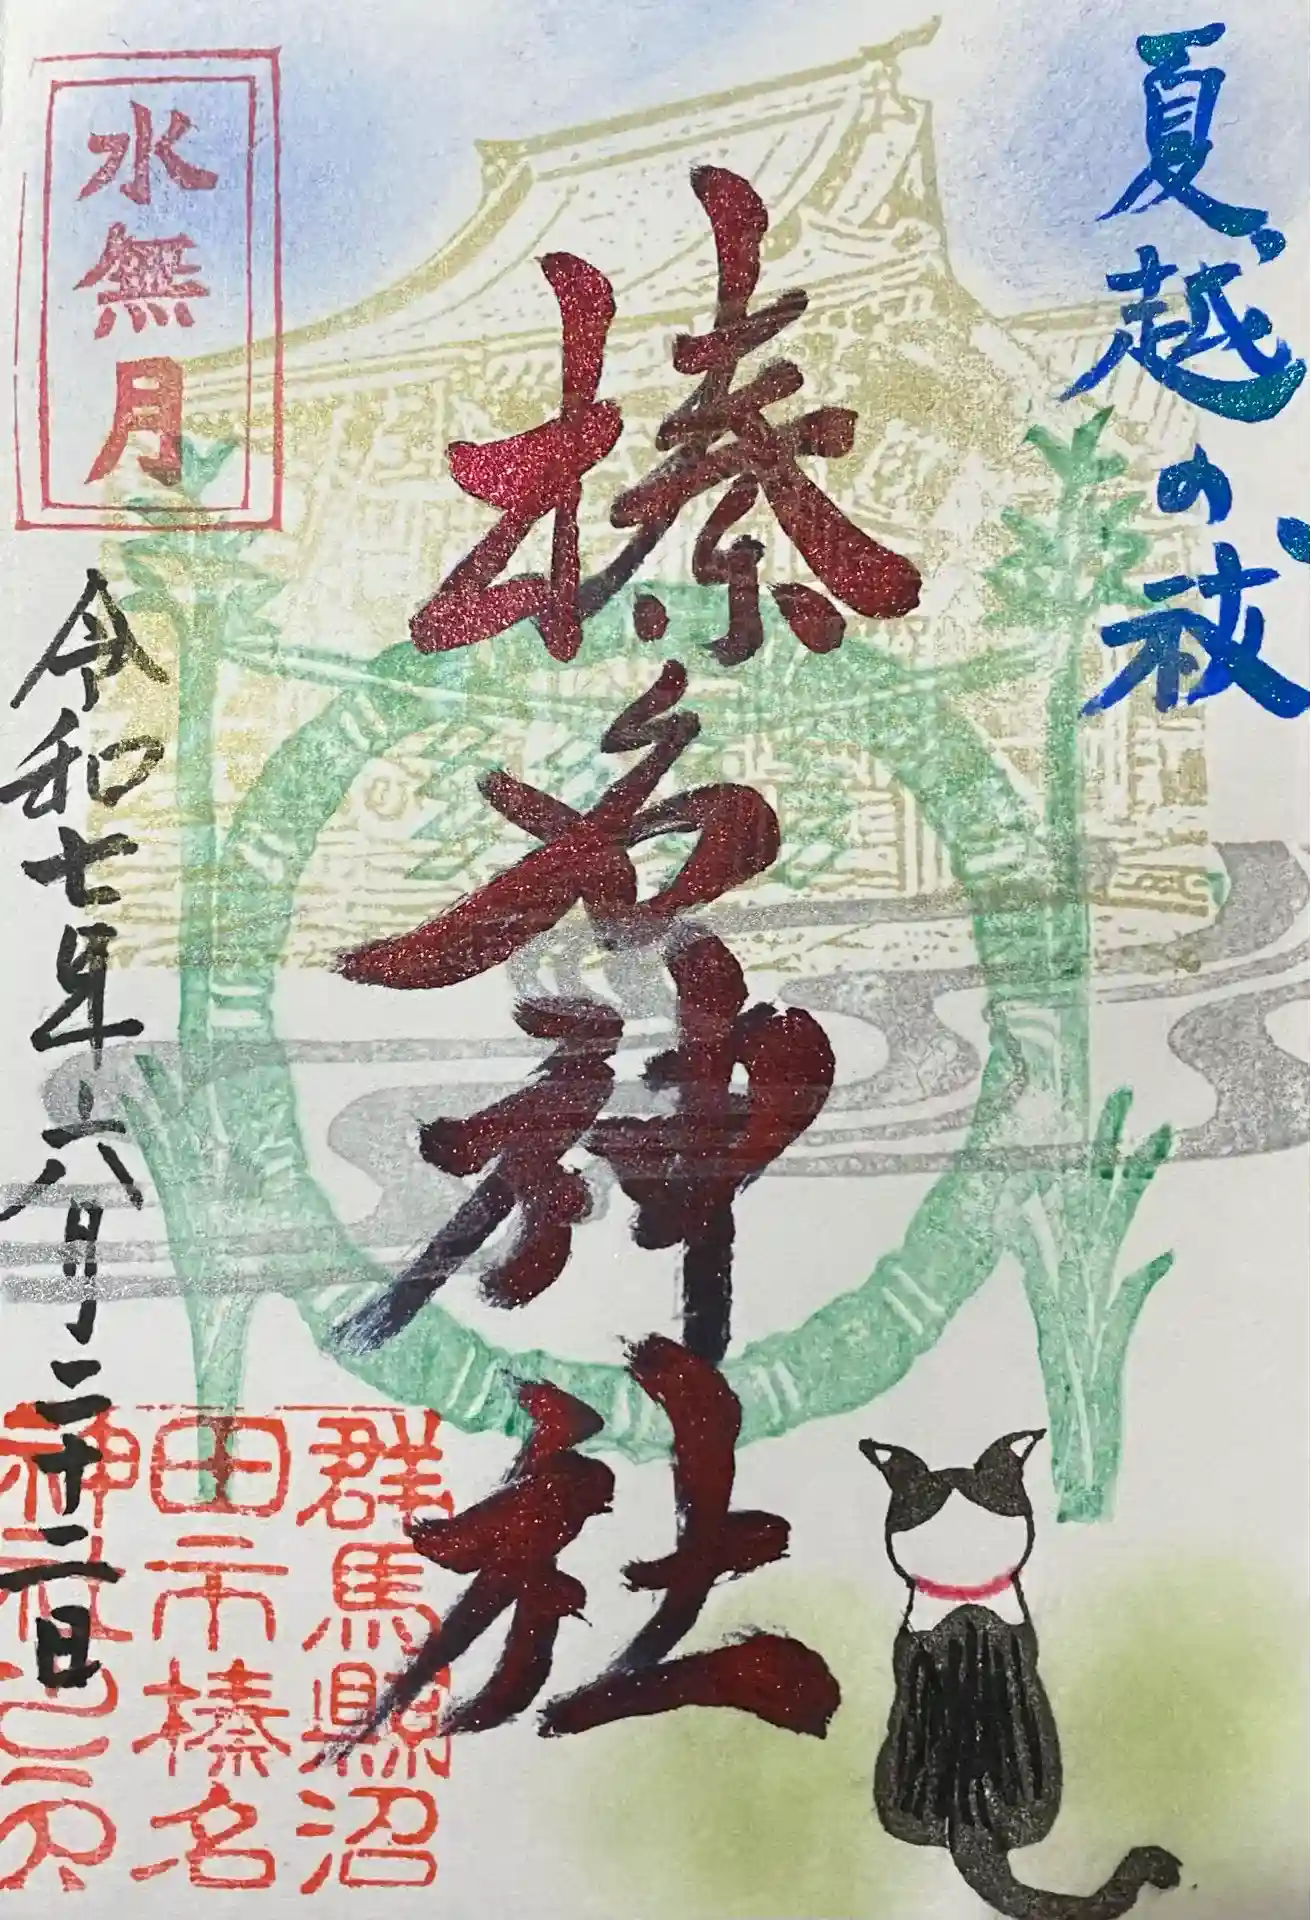 夏越の祓
榛名神社
水無月
令和七年六月二十二日
群馬縣沼
田市榛名
神社之印